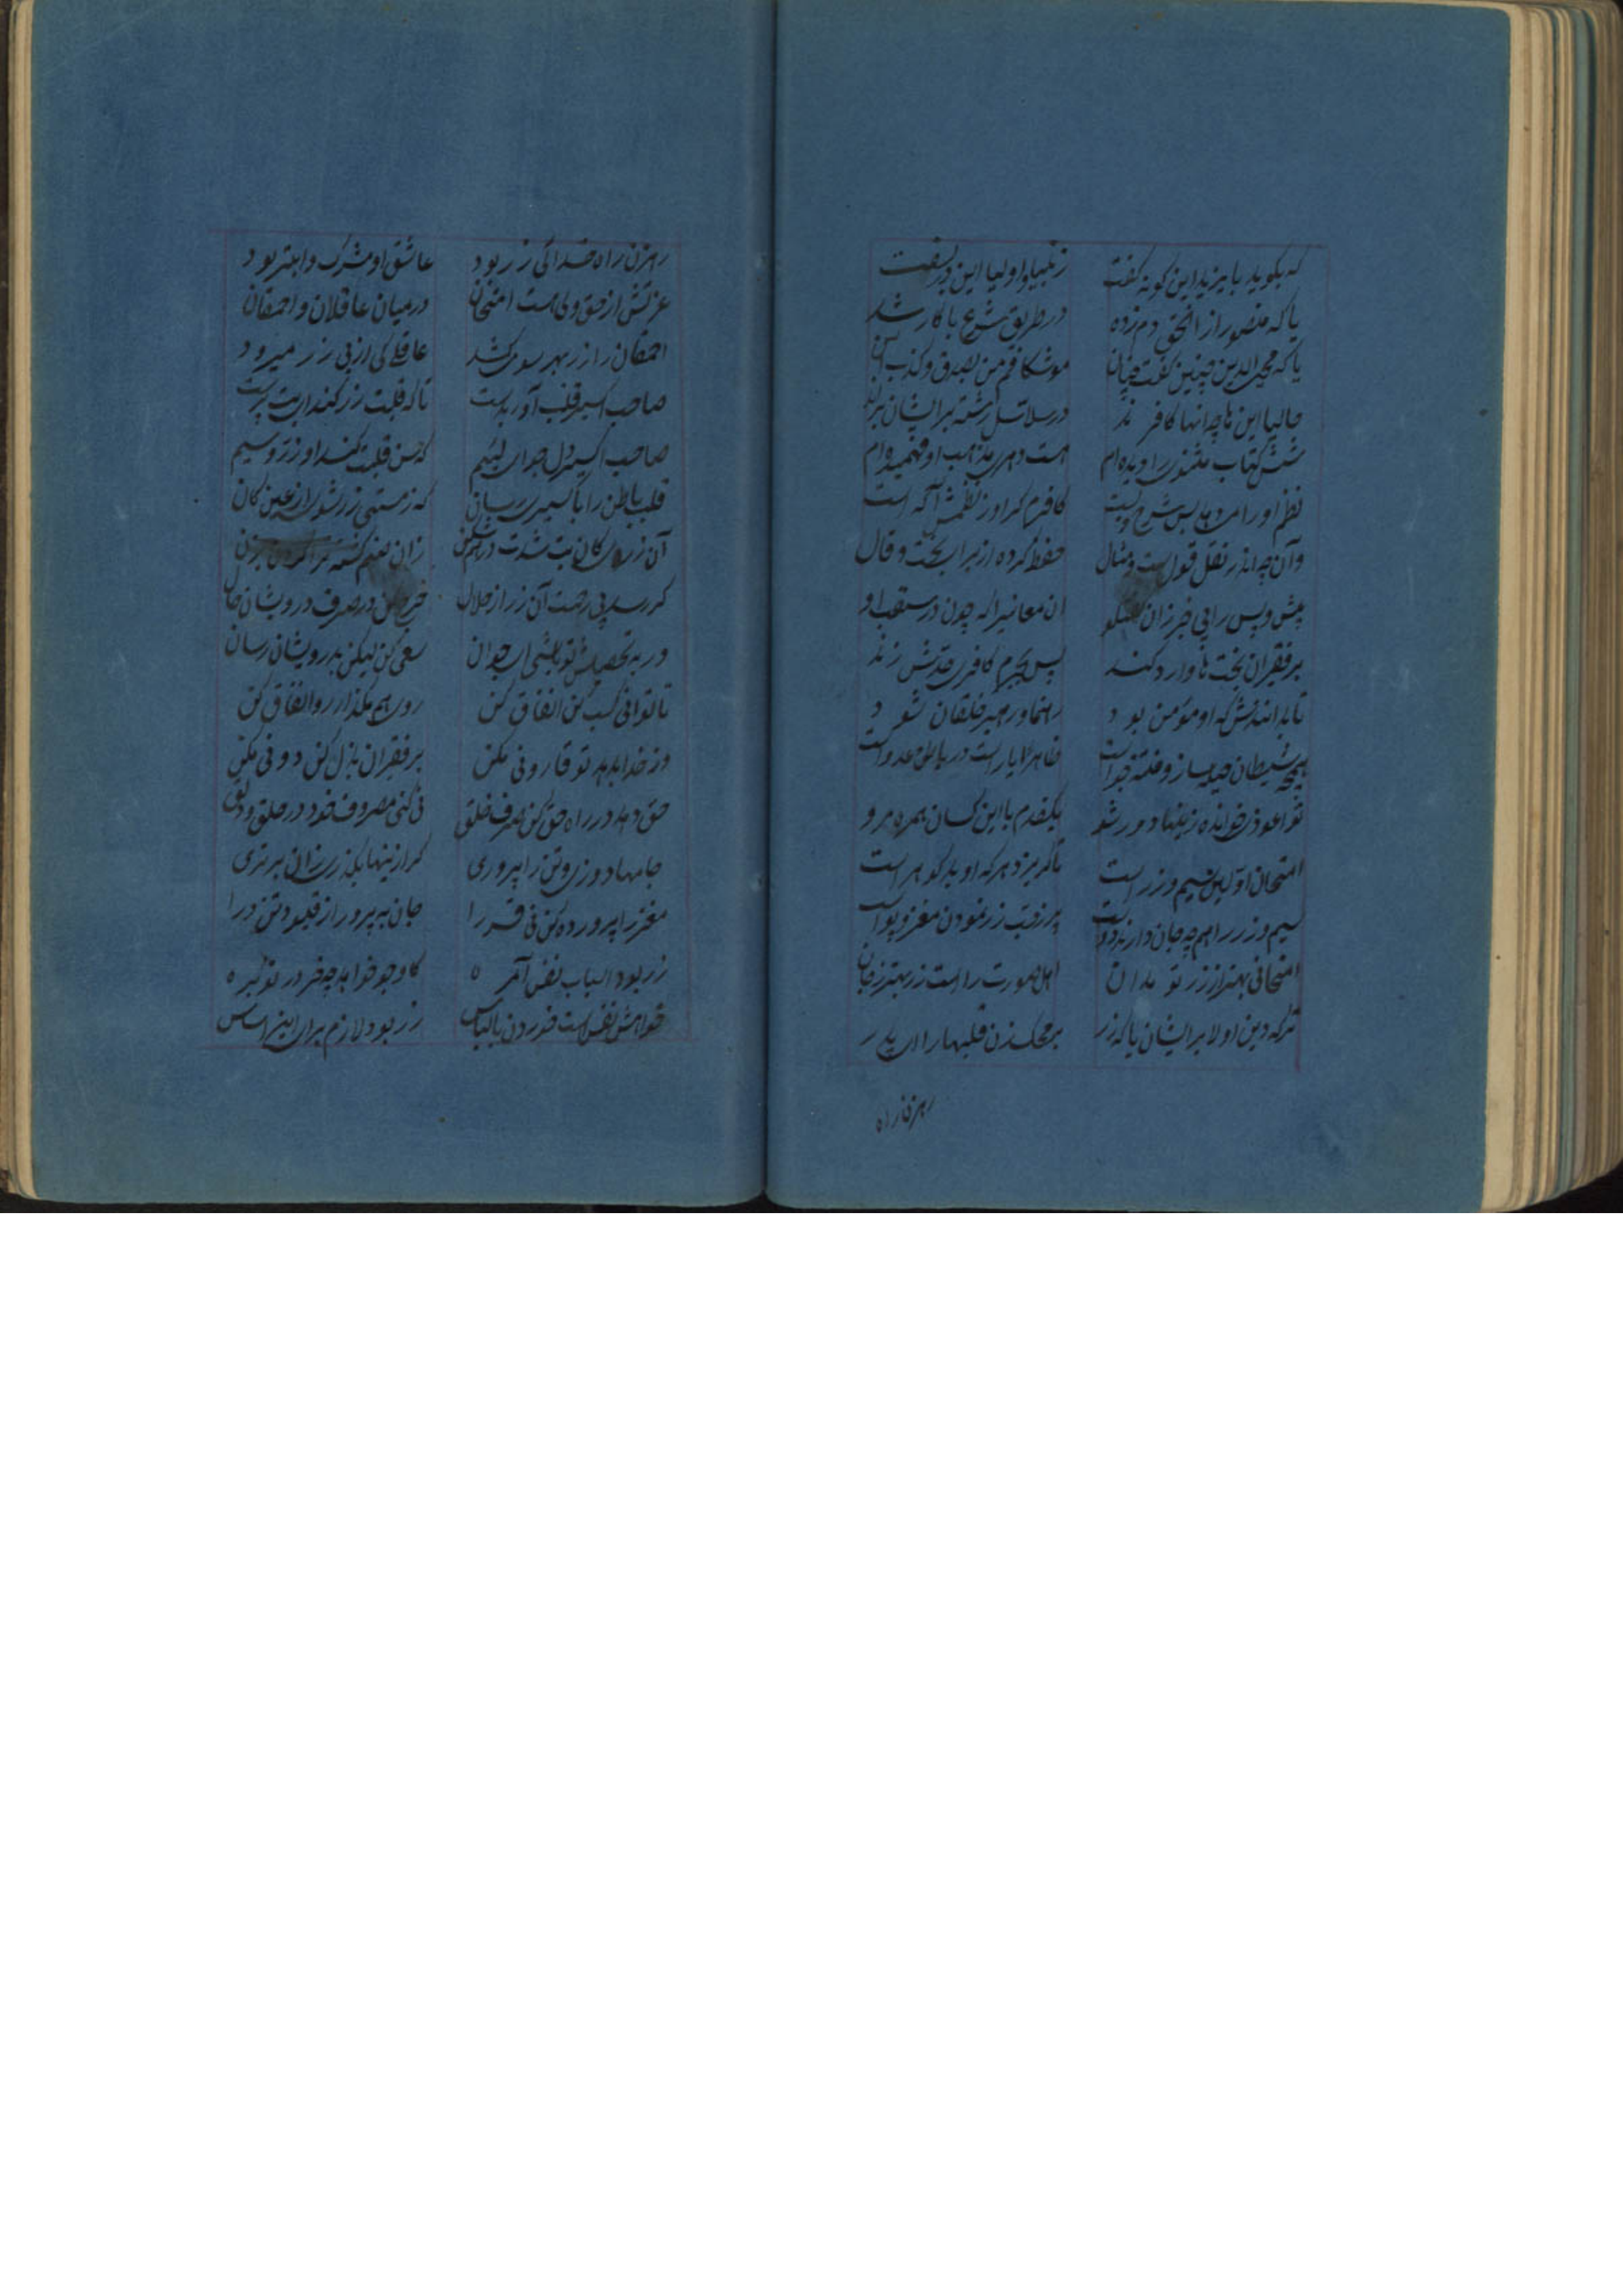 که بگوید بایزید این گونه گفت ز انبیا و اولیا این در نسفت
یا که منصور از انا الحق دم زده در طریق شرع با کار شد
یا که محیی الدین چنین گفت و چنان موشکافم من بصدق و کذب آن
حالیا این ها چه آنها کافرند در سلاسل رشته بر ایشان
شش کتاب مثنوی را دیده ام هست دهری مذهب او فهمیده ام
نظم او را من بدیدم شرح و بست کافرم کر او ز نظمش آگه است
وآن چه اندر نقل قول است و مثال حفظ کرده از برای بحث و قال
پیش و پس را بی خبر زان گفتگو آن معانی را که چون در
بر فقیران بحث ها وارد کند پس بجرم کافری حدش زند
تا بدانندش که او مؤمن بود رهنما و رهبر خلقان شود
همچو شیطان حیله ساز و فتنه جو است ظاهرا یار است در باطن عدو است
تو اعوذی خوانده زینها دور شو یکقدم با این کسان همره مرو
امتحان اولین سیم و زر است تا کریزد هر که او بد کوهر است
سیم و زر را همچو جان دارند دوست زر نمودن مغز و پوست
امتحانی بهتر از زر تو مدان اهل صورت راست زر بهتر ز جان
ترک دین اولا بر ایشان یا که زر بر محک زن قلبها را ای پدر
رهزن راه
رهزن راه خدائی زر بود عاشق او مشرک و ابتر بود
عزتش از حق ولی هست امتحان در میان عاقلان و احمقان
احمقان را زر بهر سو می کشد عاقلی کی از پی زر میرود
صاحب اکسیر قلب آور بدست تا که قلبت زر کند ای بت پرست
صاحب اکسیر دل جو ای لئیم که مس قلبت کند او زر و سیم
قلب باطن را باکسیری رسان که ز مستی زر شوی از عین کان
آن زری کان بت شدت در زان
کر رسد بی زحمت آن زر از حلال خرج کن در صرف درویشان حال
ور به تحصیلش تو باشی ای جوان سعی کن لیکن بدرویشان رسان
تا توانی کسب کن انفاق کن روی هم مکذار رو انفاق کن
ور خدا بدهد تو قارونی مکن بر فقیران بذل کن دونی مکن
حق دهد در راه حق کن صرف خلق نی کنی مصروف خود در حلق و دلق
جامها دوزی و تن را پروری کر ازینها بکذری زان برتری
مغز را پرورده کن نی قشر را جان بپرور از قیود تن درا
زر بود اسباب نفس آمره کاو جو خواهد چه خر در توبره
خواهش نفس است خوردن با لباس زر بود لازم برای این اساس